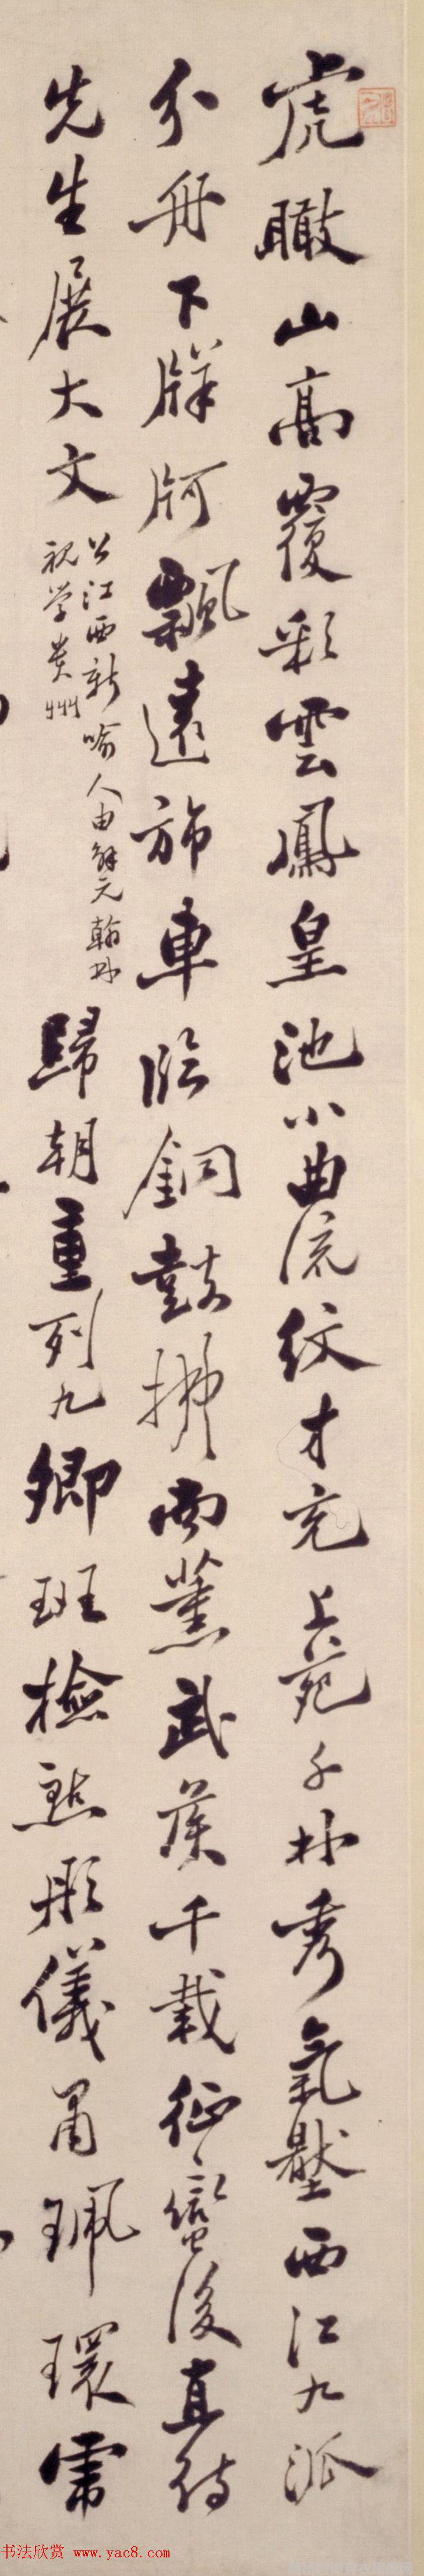 虎瞰山高覆彩雲鳳皇池小曲流紋才充上苑千林秀氣壓西江九派
分舟下牂牁飄遠旆車臨銅鼓拂南薰武侯千載征蠻後直待
先生展大文
公江西新喻人由解元翰林
視學貴州
歸朝重列九卿班檢點彤儀肅珮環需
书法欣赏 www.yac8.com